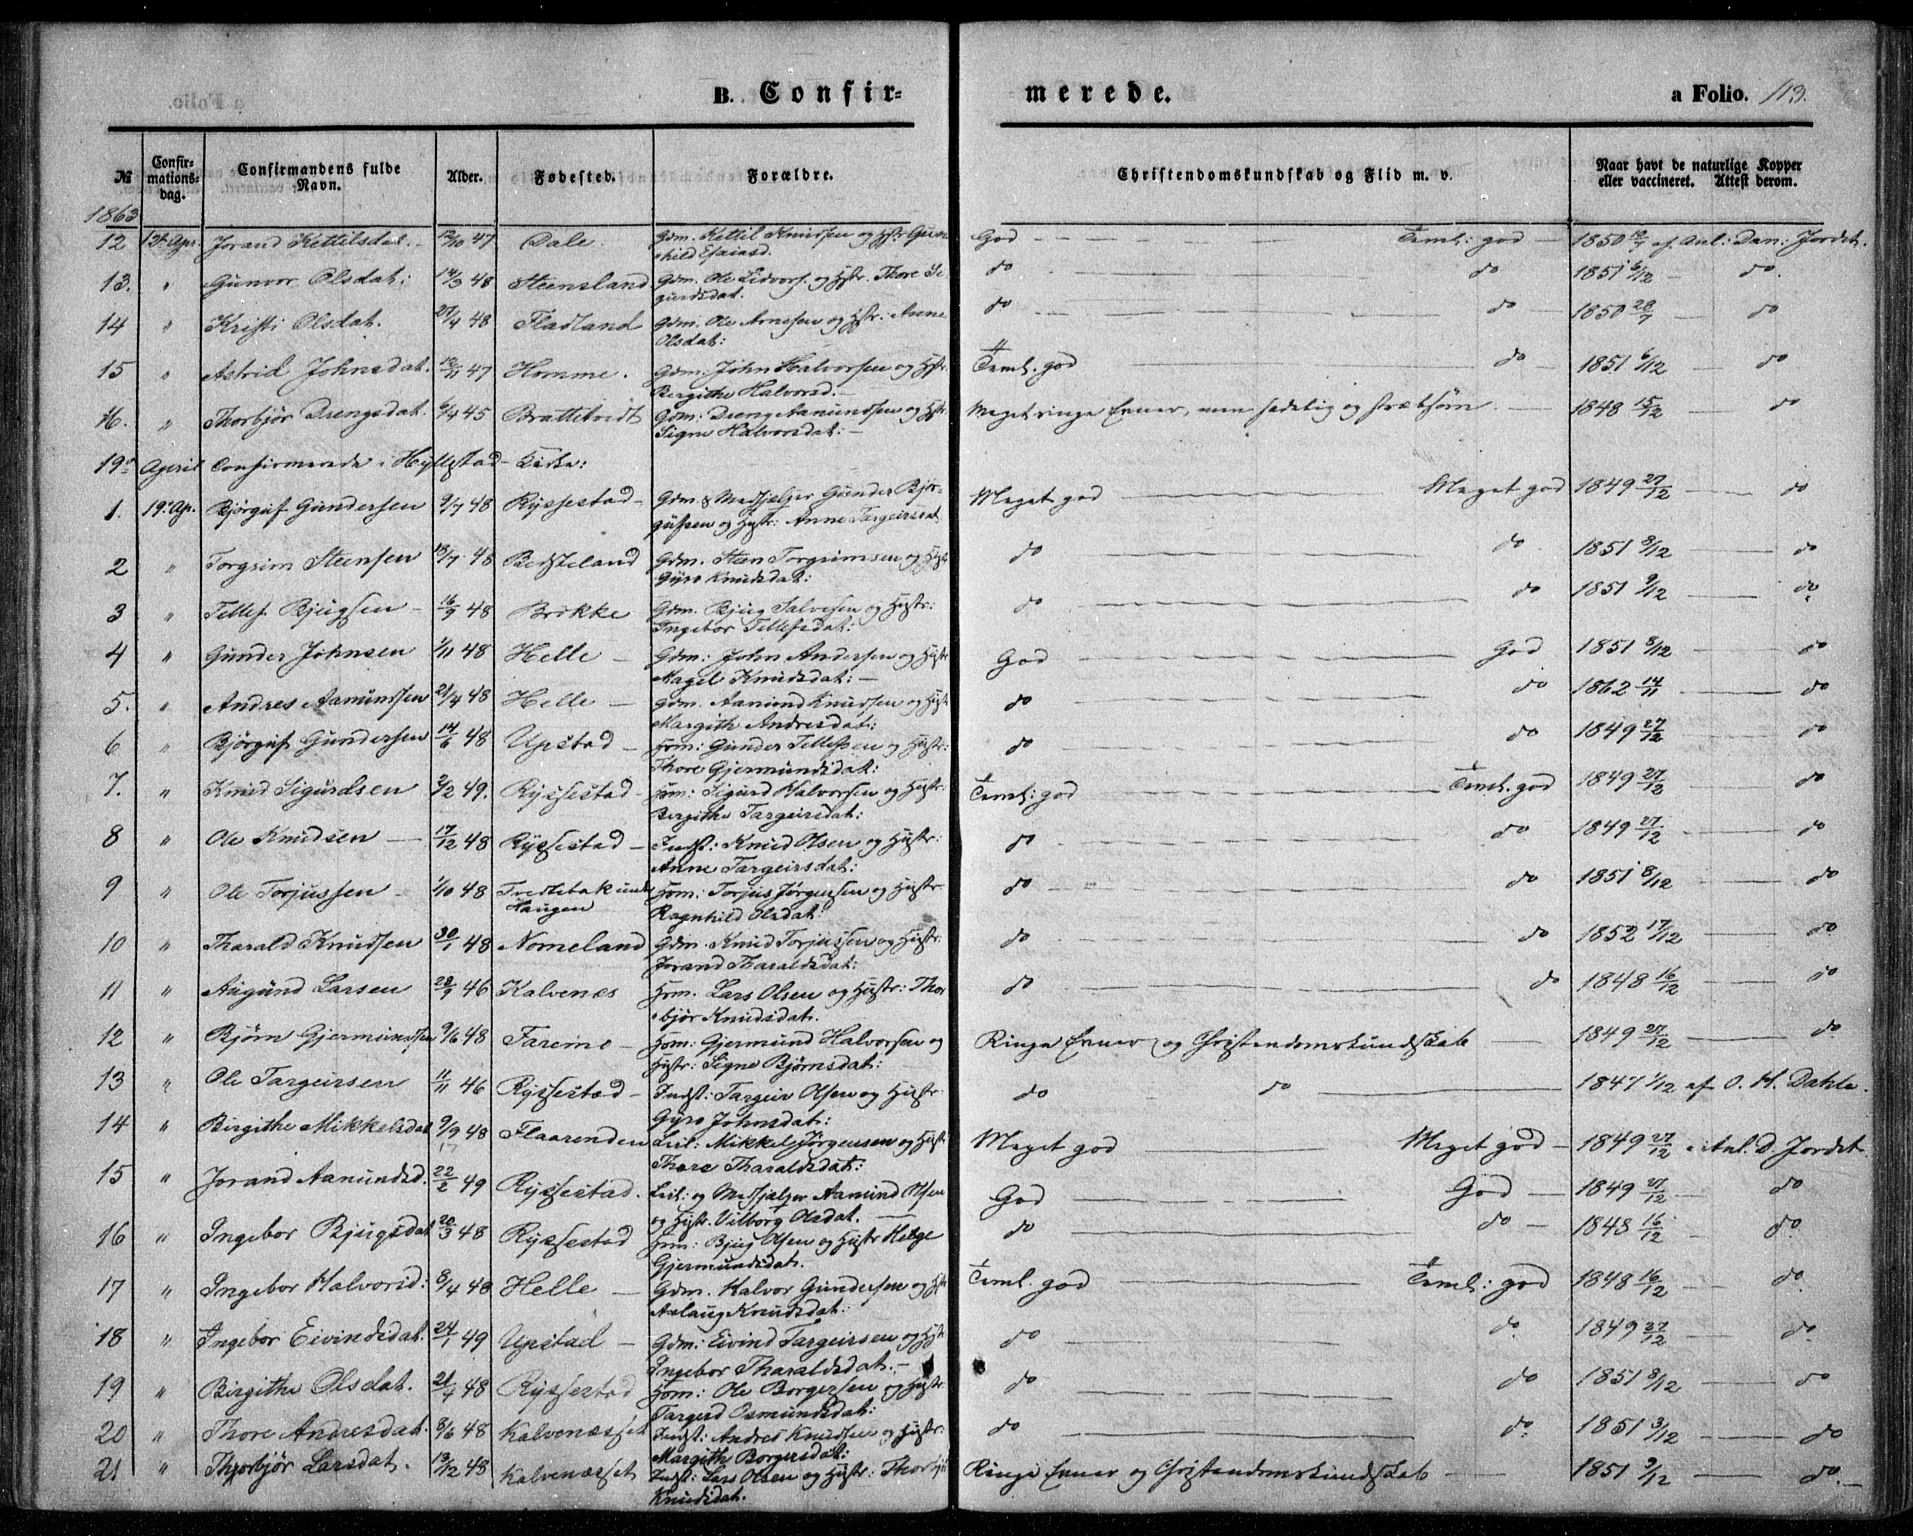 B. Confir- merede. a Folio. 113.
№ Confir-mations-dag. Confirmandens fulde Navn. Alder. Fødested. Forældre. Christendomskundskab og Flid m. v. Naar havt de naturlige Kopper eller vaccineret. Attest derom.
1863
12 12t Apr. Jorand Kettilsdat. 12/10 47 Dale Gdm. Kettil Knudsen og Hstr: Gun- God Teml: god 1850 12/7 af Anl: Dan: Jordet.
hild Esaiasd.
13. " Gunvor Olsdat: 14/3 48 Steensland Gdm. Ole Lidvors. og Hstr. Thore Si- do do 1851 6/12 do.
gurdsdat.
14 " Kristi Olsdat. 27/4 48 Fladland Gdm. Ole Arnesen og Hstr. Anne do do 1850 28/7 do
Olsdat:
15 " Astrid Johnsdat. 12/11 47 Homme. Gdm. John Halvorsen og Hstr. Teml. god do 1851 6/12 do
Bergithe Halvorsd.
16. " Thorbjør Drengsdat. 6/4 45 Brattetveidt Gdm: Dreng Aamundsen og Hstr Meget ringe Evner, men sædelig og stræbsom. 1848 15/12 do
Signe Halvorsdat:
19de April Confirmerede i Hyllestad Kirke:
1. 19de Ap. Bjørguf Gundersen 9/7 48 Ryssestad Gdm & Medhjælper Gunder Bjør- Meget god Meget god 1849 27/12 do
gufsen og Hstr: Anne Targeirsdat
2 " Torgrim Steensen 13/7 48 Besteland Gdm. Sten Torgrimsen og Hstr do do 1851 8/12 do
Gyro Knudsdat:
3 " Tellef Bjugsen 16/9 48 Brokke Gdm. Bjug Salvesen og Hstr: do do 1851 9/12 do.
Ingebor Tellefsdat:
4 " Gunder Johnsen 1/11 48 Helle Gdm: John Andersen og Hstr God God 1851 8/12 do
Aagot Knudsdat:
5. " Andres Aamundsen 21/4 48 Helle Gdm. Aamund Knudsen og Hstr do do 1862 14/11 do
Margith Andresdat:
6 " Bjørguf Gundersen 14/6 48 Upstad Hsm: Gunder Tellefsen og Hstr: do do 1849 27/12 do
Thore Gjermundsdat:
7. " Knud Sigurdsen 2/2 49. Ryssestad Hsm: Sigurd Halvorsen og Hstr: Teml: god Teml. god 1849 27/12 do
Bergithe Targeirsdat:
8 " Ole Knudsen 17/12 48 Ryssestad Indst: Knud Olsen og Hstr: do do 1849 27/12 do
Anne Targeirsdat:
9 " Ole Torjussen 1/10 48 Tvedtebak und. Haugen Hsm: Torjus Jørgensen og Hstr do do 1851 8/12 do
Ragnhild Olsdat:
10 " Tharald Knudsen 30/1 48 Nomeland Gdm. Knud Torjussen og Hstr: do do 1852 17/12 do.
Jorand Tharaldsdat:
11 " Augund Larsen 28/9 46 Kalvenæs Hsm. Lars Olsen og Hustr: Thor do do 1848 16/12 do
bjør Knudsdat.
12 " Bjørn Gjermundsen 9/6 48 Fareime Hsm: Gjermund Halvorsen og Ringe Evner og Christendomskundskab 1849 27/12 do.
Hstr: Signe Bjørnsdat:
13 " Ole Targeirsen 11/11 46 Ryssestad Indst: Targeir Olsen og Hustr do do 1847 1/12 af O. H. Dahle.
Gyro Johnsdat:
14 " Birgithe Mikkelsdat 9/9 48 Flaarenden Leil: Mikkel Jørgensen og Hstr Meget god Meget god 1849 27/12 Anl. D. Jordet
Thore Tharaldsdat:
15 " Jorand Aamundsd. 22/2 49 Ryssestad. Leil: og Medhjælper Aamund Olsen God God 1849 27/12 do
og Hstr. Vilborg Olsdat.
16 " Ingebor Bjugsdat 20/3 48 Ryssestad Hsm: Bjug Olsen og Hustr Helge do do 1848 16/12 do.
Gjermundsdat.
17 " Ingebor Halvorsd: 8/4 48 Helle Gdm. Halvor Gundersen og Hstr Teml. god Teml: god 1848 16/12 do.
Aslaug Knudsdat:
18 " Ingebor Eivindsdat. 24/1 49 Upstad Gdm: Eivind Targeirsen og Hstr do do. 1849 27/12 do.
Ingebor Tharaldsdat.
19 " Birgithe Olsdat. 21/7 48 Ryssestad Hsm: Ole Borgersen og Hstr. do do 1851 8/12 do
Targerd Osmundsdat:
20 " Thore Andresdat. 8/6 48 Kalvenæsset Indst: Andres Knudsen og Hustr. do do. 1851 3/12 do
Margith Borgersdat:
21 " Thorbjør Larsdat. 13/12 48 Kalvenæsset Indst: Lars Olsen og Hustr: Thorbjø Ringe Evner og Christendomskundskab 1851 9/12 do.
Knudsdat.